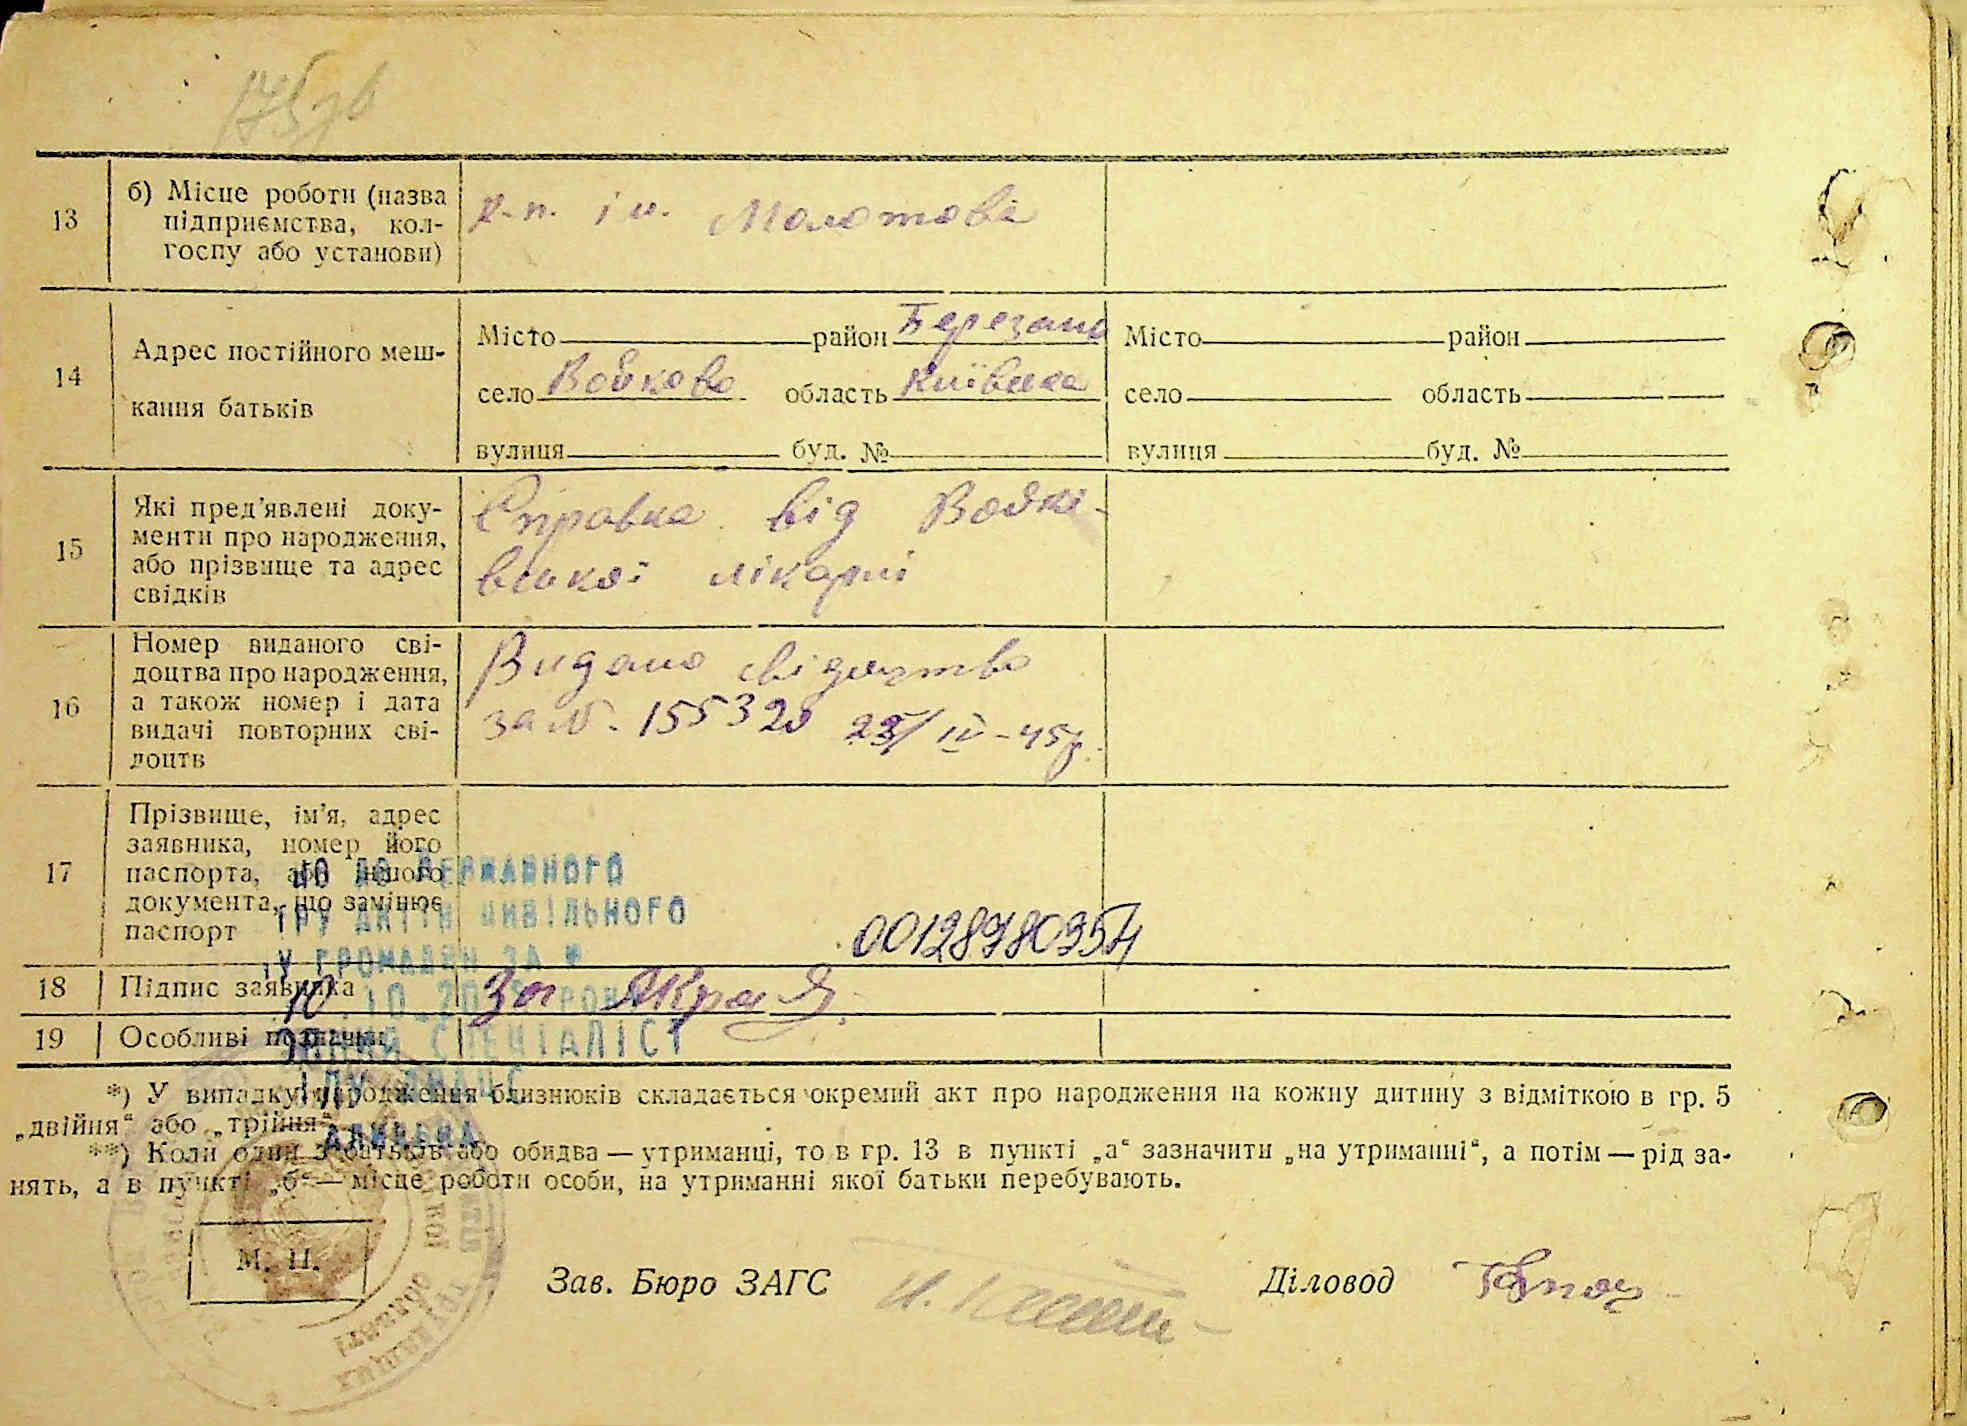 175 зв
13
б) Місце роботи (назва
підприємства, кол-
госпу або установи)
к-п. ім. Молотова
14
Адрес постійного меш-
кання батьків
Місто район Березань
село Войково область Київська
вулиця буд. №
Місто район
село область
вулиця буд. №
15
Які пред'явлені доку-
менти про народження,
або прізвище та адрес
свідків
Справка від Войкі-
вської лікарні
16
Номер виданого сві-
доцтва про народження,
а також номер і дата
видачі повторних сві-
доцтв
Видано свідоцтво
за № 155320 23/IV-45р.
17
Прізвище, ім'я, адрес
заявника, номер його
паспорта, або іншого
документа, що замінює
паспорт
ДО ДЕРЖАВНОГО
АКТІВ ЦИВІЛЬНОГО
ГРОМАДЯН ЗА №
00128980954
18
Підпис заявника
10 .10.20 РОКУ
19
Особливі позначки
СПЕЦІАЛІСТ
*) У випадку народження близнюків складається окремий акт про народження на кожну дитину з відміткою в гр. 5
„двійня“ або „трійня“.
**) Коли один з батьків або обидва — утриманці, то в гр. 13 в пункті „а“ зазначити „на утриманні“, а потім — рід за-
нять, а в пункті „б“ — місце роботи особи, на утриманні якої батьки перебувають.
М. П.
Зав. Бюро ЗАГС
Діловод